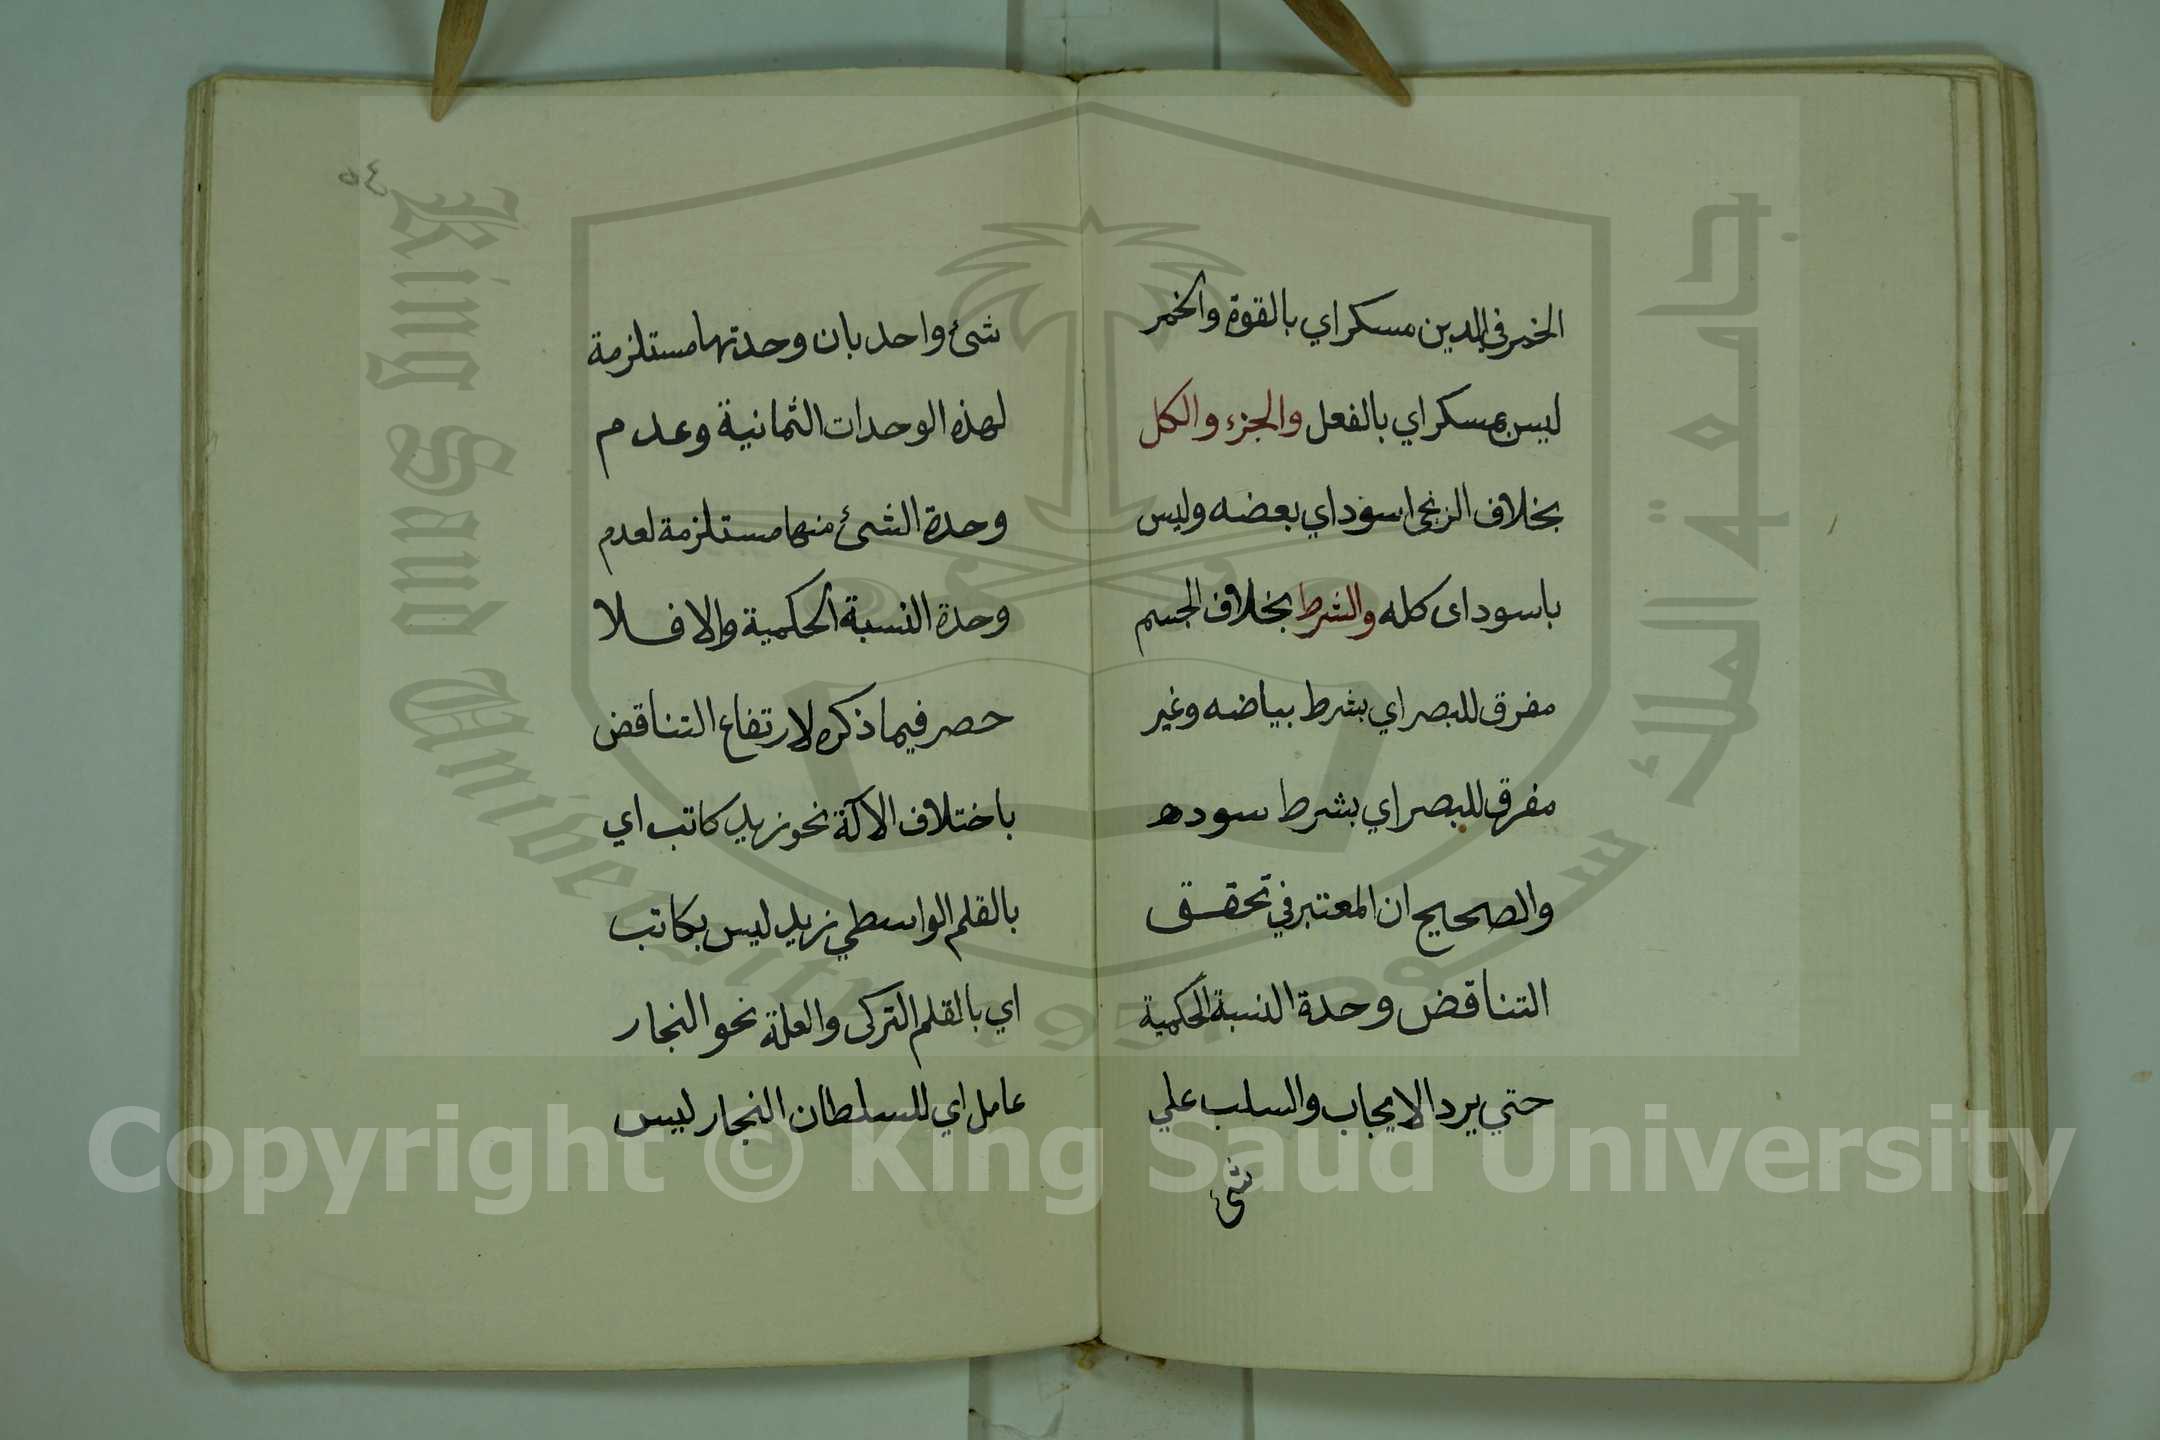 الخمر في الدين مسكر اي بالقوة والخمر
ليس بمسكر اي بالفعل والجزء والكل
بخلاف الزنجي اسود اي بعضه وليس
باسود اى كله والشرط بخلاف الجسم
مفرق للبصر اي بشرط بياضه وغير
مفرق للبصر اي بشرط سوده
والصحيح ان المعتبر في تحقق
التناقض وحدة النسبة الحكمية
حتي يرد الايجاب والسلب علي
شئ
٤٥
شئ واحد بان وحدتها مستلزمة
لهذه الوحدات الثمانية وعدم
وحدة الشئ منها مستلزمة لعدم
وحدة النسبة الحكمية والا فلا
حصر فيما ذكره لارتفاع التناقض
باختلاف الالآة نحو زيد كاتب اي
بالقلم الواسطي زيد ليس بكاتب
اي بالقلم التركى والعلة نحو النجار
عامل اي للسلطان النجار ليس
King Saud University
جامعة الملك سعود
1957
Copyright © King Saud University